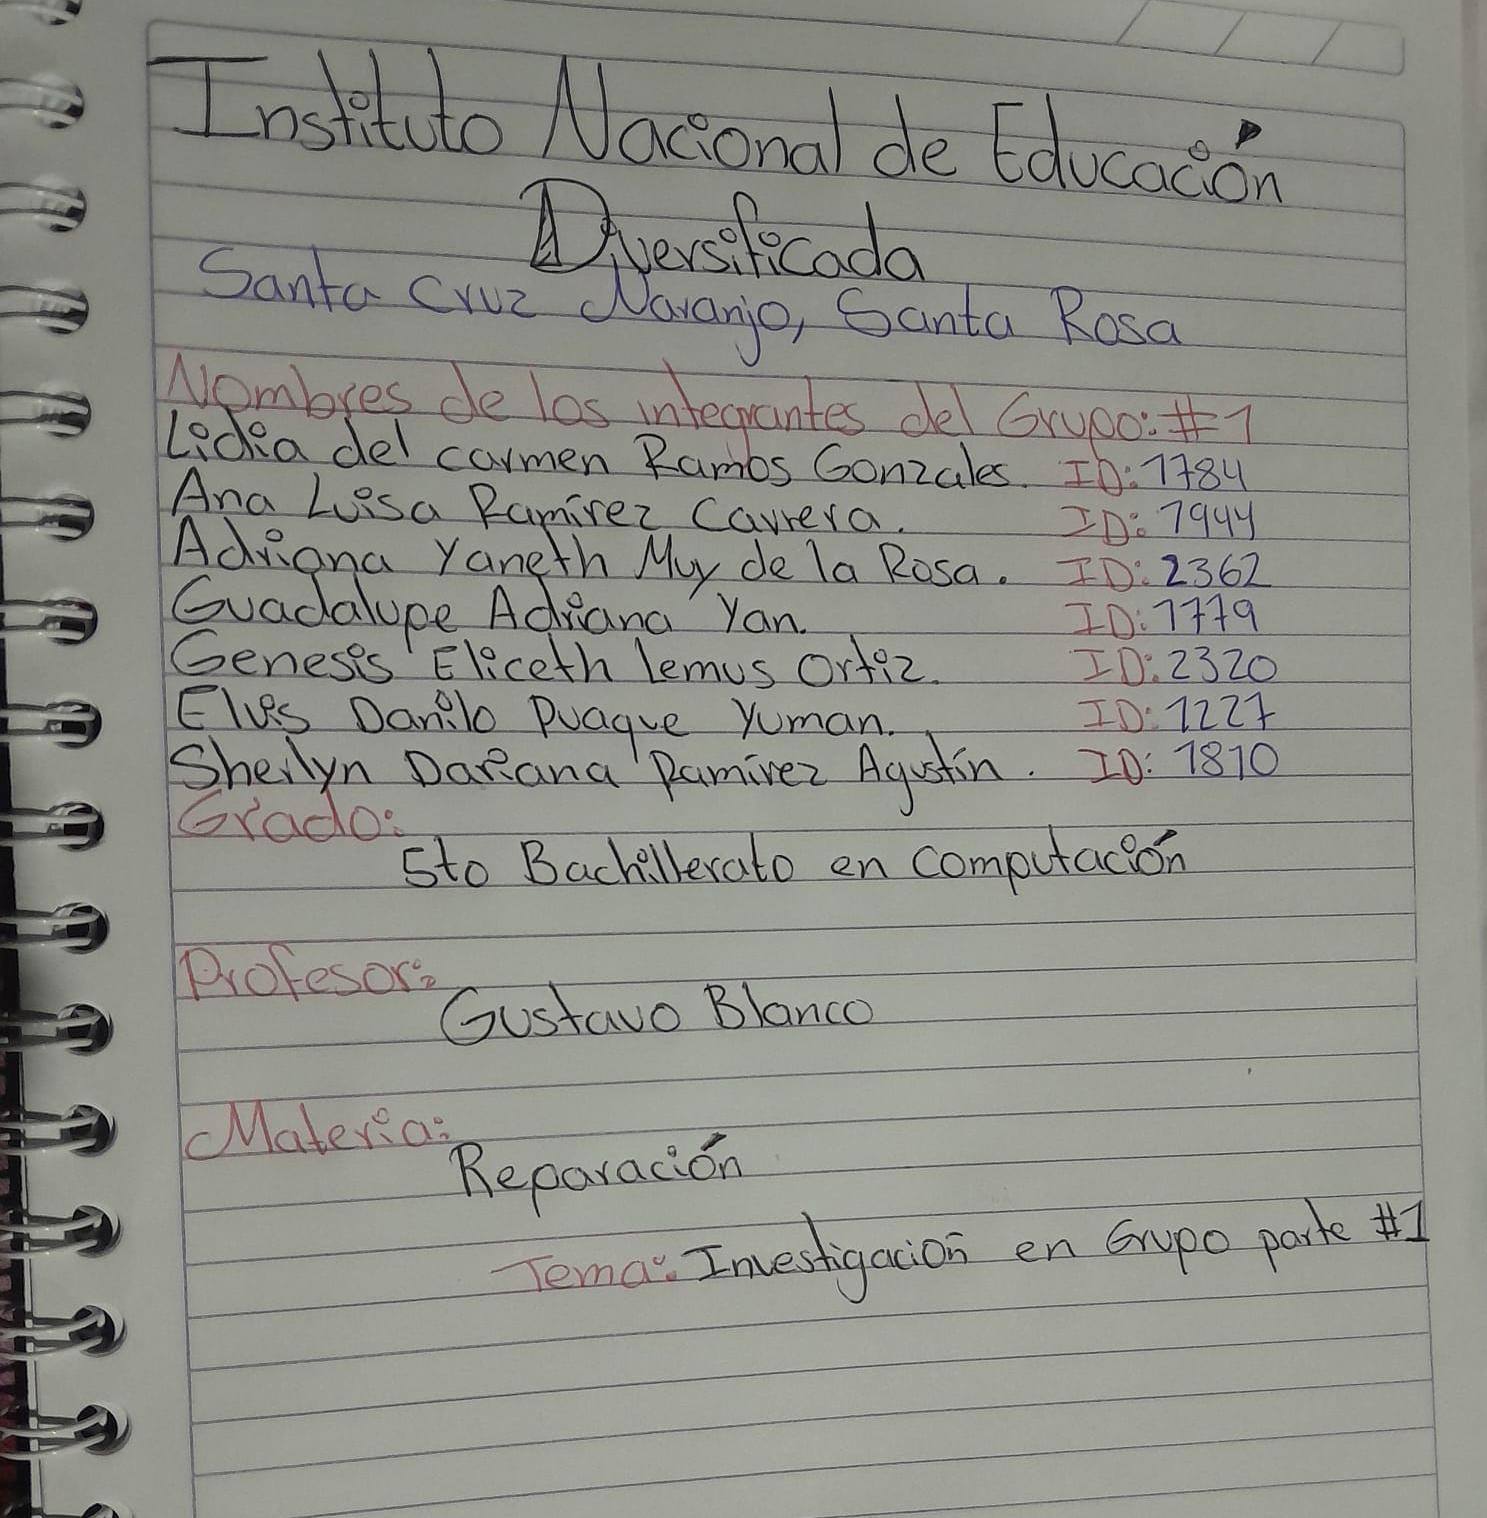 Instituto Nacional de Educación
Diversificada
Santa Cruz Naranjo, Santa Rosa
Nombres de los integrantes del Grupo: #1
Lidia del carmen Ramos Gonzales. ID: 1784
Ana Luisa Ramírez Carrera. ID: 1944
Adriana Yaneth Muy de la Rosa. ID: 2362
Guadalupe Adriana Yan. ID: 1779
Genesis Eliceth lemus Ortiz. ID: 2320
Elvis Danilo Puaque Yuman. ID: 1227
Sherlyn Dariana Ramirez Agustín. ID: 1810
Grado:
5to Bachillerato en computación
Profesor:
Gustavo Blanco
Materia:
Reparación
Tema: Investigación en Grupo parte #1